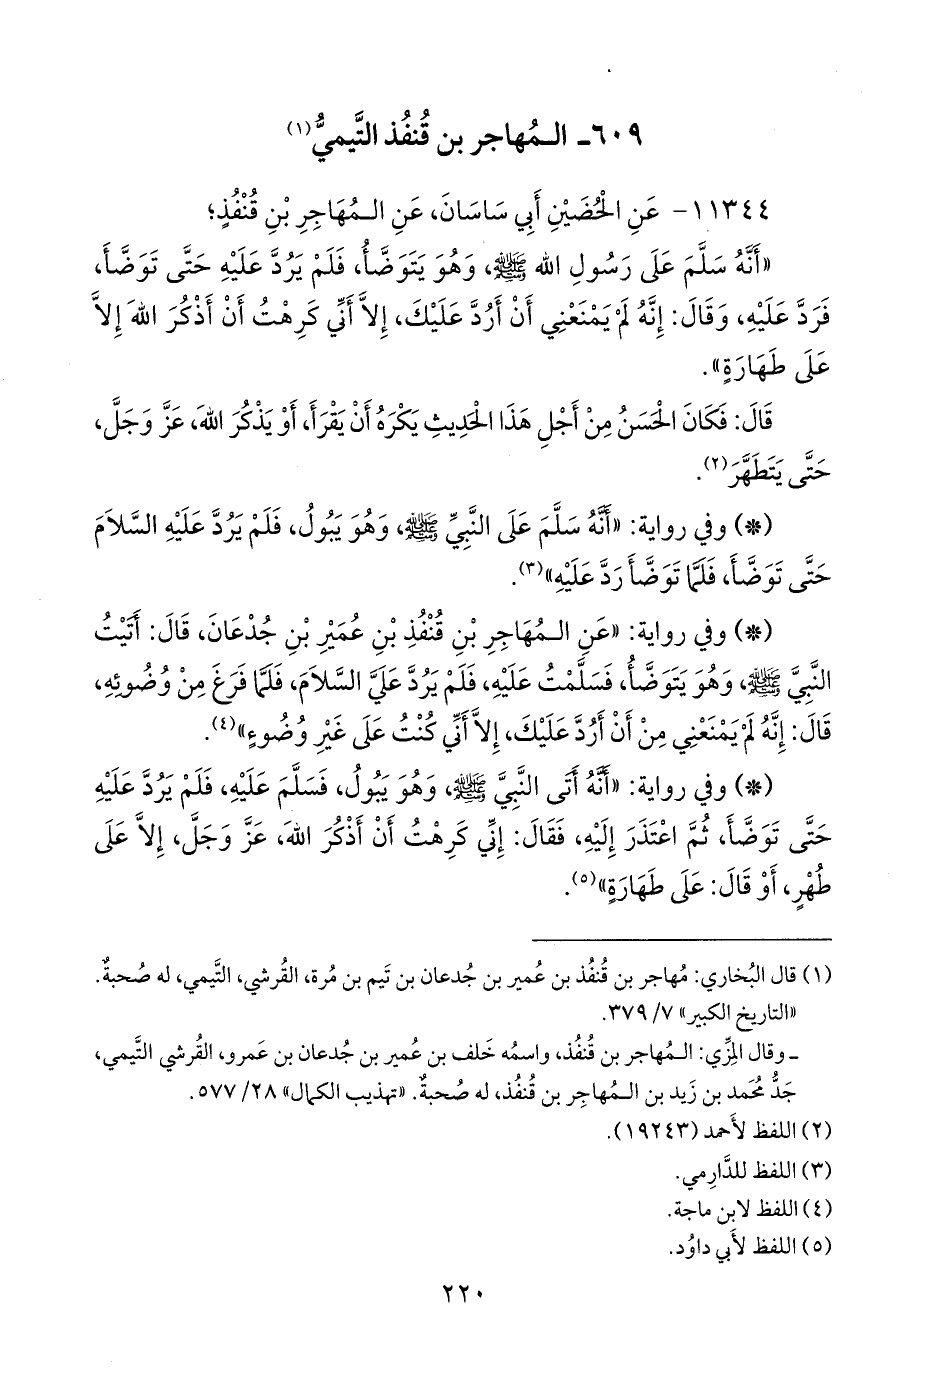 ٦٠٩- الـمُهاجر بن قُنفُذ التَّيميُّ(١)
١١٣٤٤- عَنِ الْحُضَيْنِ أَبِي سَاسَانَ، عَنِ الـمُهَاجِرِ بْنِ قُنْفُذٍ؛
«أَنَّهُ سَلَّمَ عَلَى رَسُولِ الله ﷺ، وَهُوَ يَتَوَضَّأُ، فَلَمْ يَرُدَّ عَلَيْهِ حَتَّى تَوَضَّأَ،
فَرَدَّ عَلَيْهِ، وَقَالَ: إِنَّهُ لَمْ يَمْنَعْنِي أَنْ أَرُدَّ عَلَيْكَ، إِلاَّ أَنِّي كَرِهْتُ أَنْ أَذْكُرَ اللهَ إِلاَّ
عَلَى طَهَارَةٍ».
قَالَ: فَكَانَ الْحَسَنُ مِنْ أَجْلِ هَذَا الْحَدِيثِ يَكْرَهُ أَنْ يَقْرَأَ، أَوْ يَذْكُرَ اللهَ، عَزَّ وَجَلَّ،
حَتَّى يَتَطَهَّرَ(٢).
(*) وفي رواية: «أَنَّهُ سَلَّمَ عَلَى النَّبِيِّ ﷺ، وَهُوَ يَبُولُ، فَلَمْ يَرُدَّ عَلَيْهِ السَّلاَمَ
حَتَّى تَوَضَّأَ، فَلَمَّا تَوَضَّأَ رَدَّ عَلَيْهِ»(٣).
(*) وفي رواية: «عَنِ الـمُهَاجِرِ بْنِ قُنْفُذِ بْنِ عُمَيْرِ بْنِ جُدْعَانَ، قَالَ: أَتَيْتُ
النَّبِيَّ ﷺ، وَهُوَ يَتَوَضَّأُ، فَسَلَّمْتُ عَلَيْهِ، فَلَمْ يَرُدَّ عَلَيَّ السَّلاَمَ، فَلَمَّا فَرَغَ مِنْ وُضُوئِهِ،
قَالَ: إِنَّهُ لَمْ يَمْنَعْنِي مِنْ أَنْ أَرُدَّ عَلَيْكَ، إِلاَّ أَنِّي كُنْتُ عَلَى غَيْرِ وُضُوءٍ»(٤).
(*) وفي رواية: «أَنَّهُ أَتَى النَّبِيَّ ﷺ، وَهُوَ يَبُولُ، فَسَلَّمَ عَلَيْهِ، فَلَمْ يَرُدَّ عَلَيْهِ
حَتَّى تَوَضَّأَ، ثُمَّ اعْتَذَرَ إِلَيْهِ، فَقَالَ: إِنِّي كَرِهْتُ أَنْ أَذْكُرَ اللهَ، عَزَّ وَجَلَّ، إِلاَّ عَلَى
طُهْرٍ، أَوْ قَالَ: عَلَى طَهَارَةٍ»(٥).
(١) قال البُخاري: مُهاجر بن قُنفُذ بن عُمير بن جُدعان بن تَيم بن مُرة، القُرشي، التَّيمي، له صُحبةٌ.
«التاريخ الكبير» ٧/ ٣٧٩.
ـ وقال المِزِّي: الـمُهاجر بن قُنفُذ، واسمُه خَلف بن عُمير بن جُدعان بن عَمرو، القُرشي التَّيمي،
جَدُّ مُحمد بن زَيد بن الـمُهاجِر بن قُنفُذ، له صُحبةٌ. «تهذيب الكمال» ٢٨/ ٥٧٧.
(٢) اللفظ لأَحمد (١٩٢٤٣).
(٣) اللفظ للدَّارِمي.
(٤) اللفظ لابن ماجة.
(٥) اللفظ لأَبي داوُد.
٢٢٠